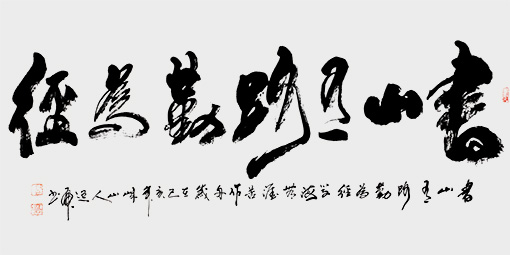 書山有路勤為徑
書山有路勤為徑學海無涯苦作舟歲在己亥年